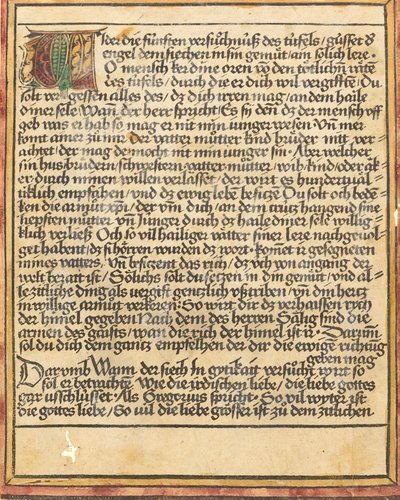 Wider die fünfften versuͦchnuß des tüfels / gusset dˢ
engel dem siechen in sin gemüt / ain solich lere.
O mensch ker dine oren von den tötlichn räte
des tüfels / durch die er dich wil vergifften / Du
solt vergessen alles des / dz dich irren mag / an dem haile
diner sele. Wan der herr spricht / Es sy den dz der mensch off
geb was er hab so mag er nit min iunger wesen. Vn wer
komt zuͦ mir. der vatter muͦtter kind bruͦder nitt ver
achtet / der mag dennocht nit min iunger sin. Aber welcher
sin hus / bruͦdern / schwestern / vatter muͦtter / wib / kind / oder äk
er durch minen willen verlasset / der wirt es hundertual
tiklich empfahen / vnd dz ewig lebē besiczē Du solt och bedē
ken die armuͦt xp̄i / der vm dich / an dem crücz hangend sine
liepsten muͦtter vn Junger durch dz haile diner sele willig
klich verließ Och so vil hailiger vätter siner lere nachgeuol
get habent / dz si hörren wurden dz wort. Komet ir gesegneten
mines vatters. Vn besiczent das rich / dz üch von angang der
welt berait ist / Sölichs solt du seczen in din gemüt / vnd al
le zitliche ding als vergift genczlich vßtriben / vn din hertz
in willige armuͦt verkeren. So wirt dir dz verhaissen rych
der himel gegeben Nach dem des herren. Sälig sind die
armen des gaists / wan die rich der himel ist ir. Darumm
sol du dich dem gantz empfelhen der dir die ewige richtug
geben mag
Darumb Wann der siech In gytikait versuͦcht wirt so
sol er betrachtē. Wie die irdischen liebe / die liebe gottes
gar vßschlüsset. Als Gregorius spricht. So vil wyter ist
die gottes liebe / So vil die liebe grösser ist zuͦ dem zitlichen